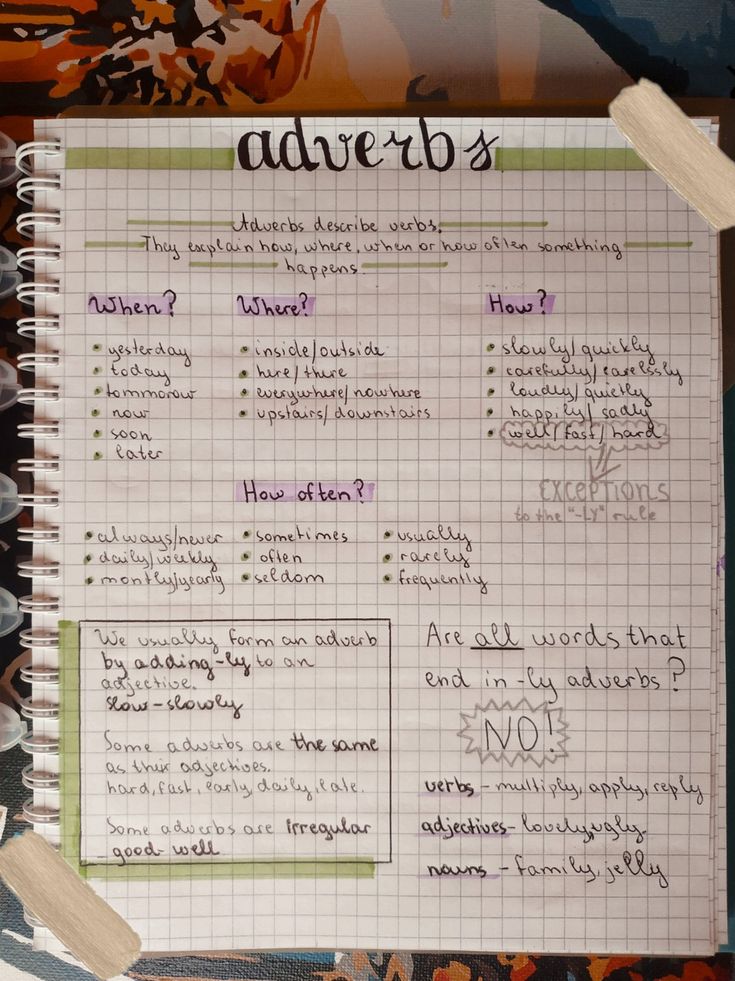 adverbs
Adverbs describe verbs.
They explain how, where, when or how often something
happens.
When?
• yesterday
• today
• tommorow
• now
• soon
• later
Where?
• inside/outside
• here/there
• everywhere/nowhere
• upstairs/downstairs
How?
• slowly/quickly
• carefully/carelssly
• loudly/quietly
• happily/sadly
• well/fast/hard
EXCEPTIONS
to the "-LY" rule
How often?
• always/never
• daily/weekly
• montly/yearly
• sometimes
• often
• seldom
• usually
• rarely
• frequently
We usually form an adverb
by adding -ly to an
adjective.
slow - slowly
Some adverbs are the same
as their adjectives.
hard, fast, early, daily, late.
Some adverbs are irregular
good - well
Are all words that
end in -ly adverbs?
NO!
verbs - multiply, apply, reply
adjectives - lovely, ugly.
nouns - family, jelly